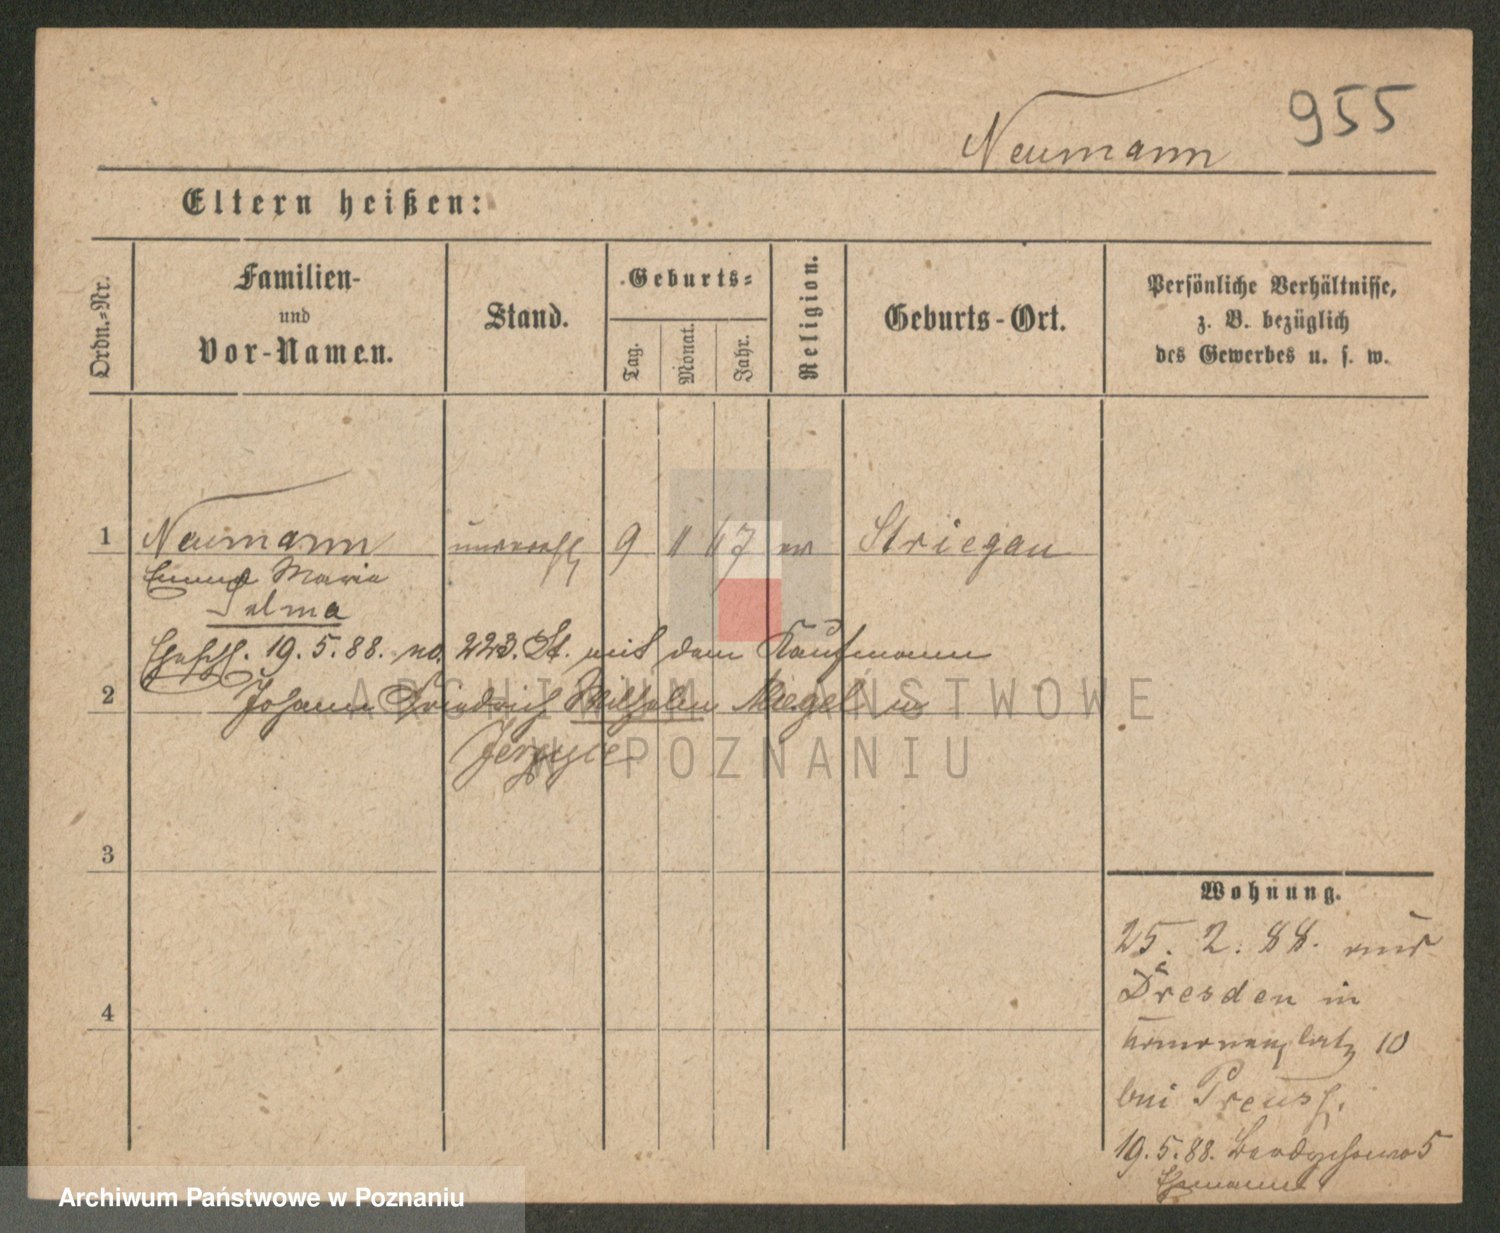 955
Neumann
Eltern heißen:
Ordn.-Nr.
Familien-
und
Vor-Namen.
Stand.
Geburts-
Tag.
Monat.
Jahr.
Religion.
Geburts-Ort.
Persönliche Verhältnisse,
z. B. bezüglich
des Gewerbes u. s. w.
1 Neumann unverehl 9 11 67 ev Striegau
Emma Maria
Selma
19.5.88. no. 223. St. mit dem Kaufmann
2 Johann Friedrich Wilhelm in
3
4
Wohnung.
25. 2. 88. aus
Dresden in
10
bei
19.5.88. 5
Ehemann
ARCHIWUM PAŃSTWOWE
W POZNANIU
Archiwum Państwowe w Poznaniu